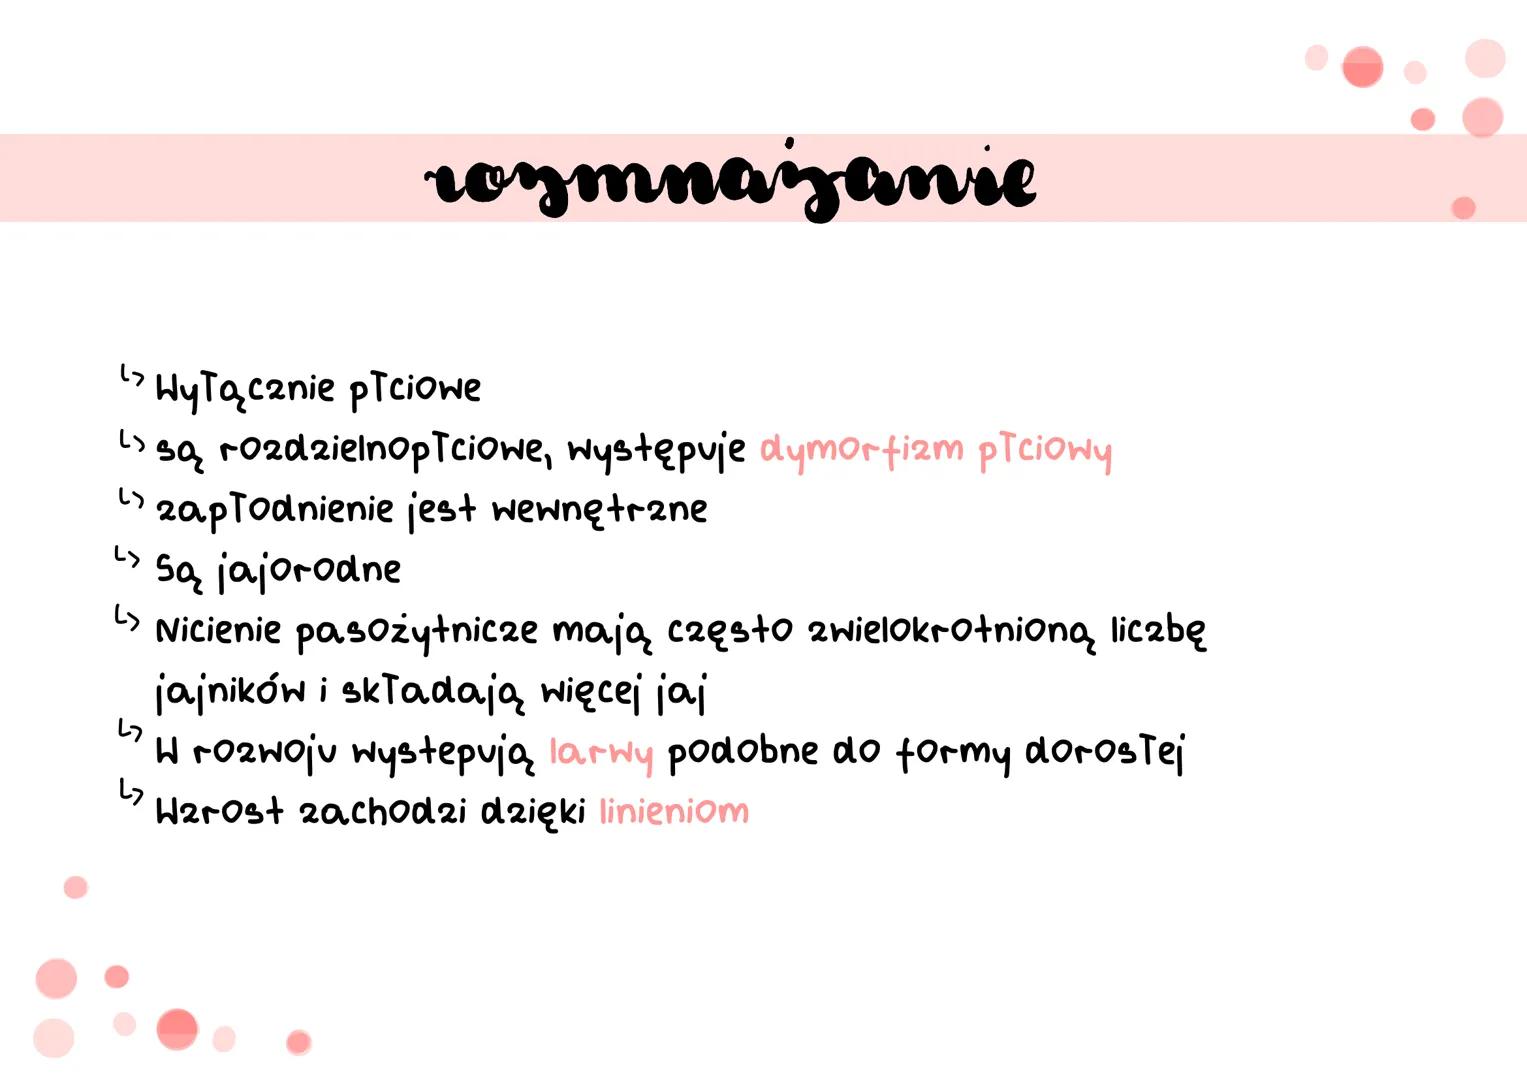 rozmnażanie
↳ Wyłącznie płciowe
↳ są rozdzielnopłciowe, występuje dymorfizm płciowy
↳ zapłodnienie jest wewnętrzne
↳ Są jajorodne
↳ Nicienie pasożytnicze mają często zwielokrotnioną liczbę
jajników i składają więcej jaj
↳ W rozwoju wystepują larwy podobne do formy dorosłej
↳ Wzrost zachodzi dzięki linieniom